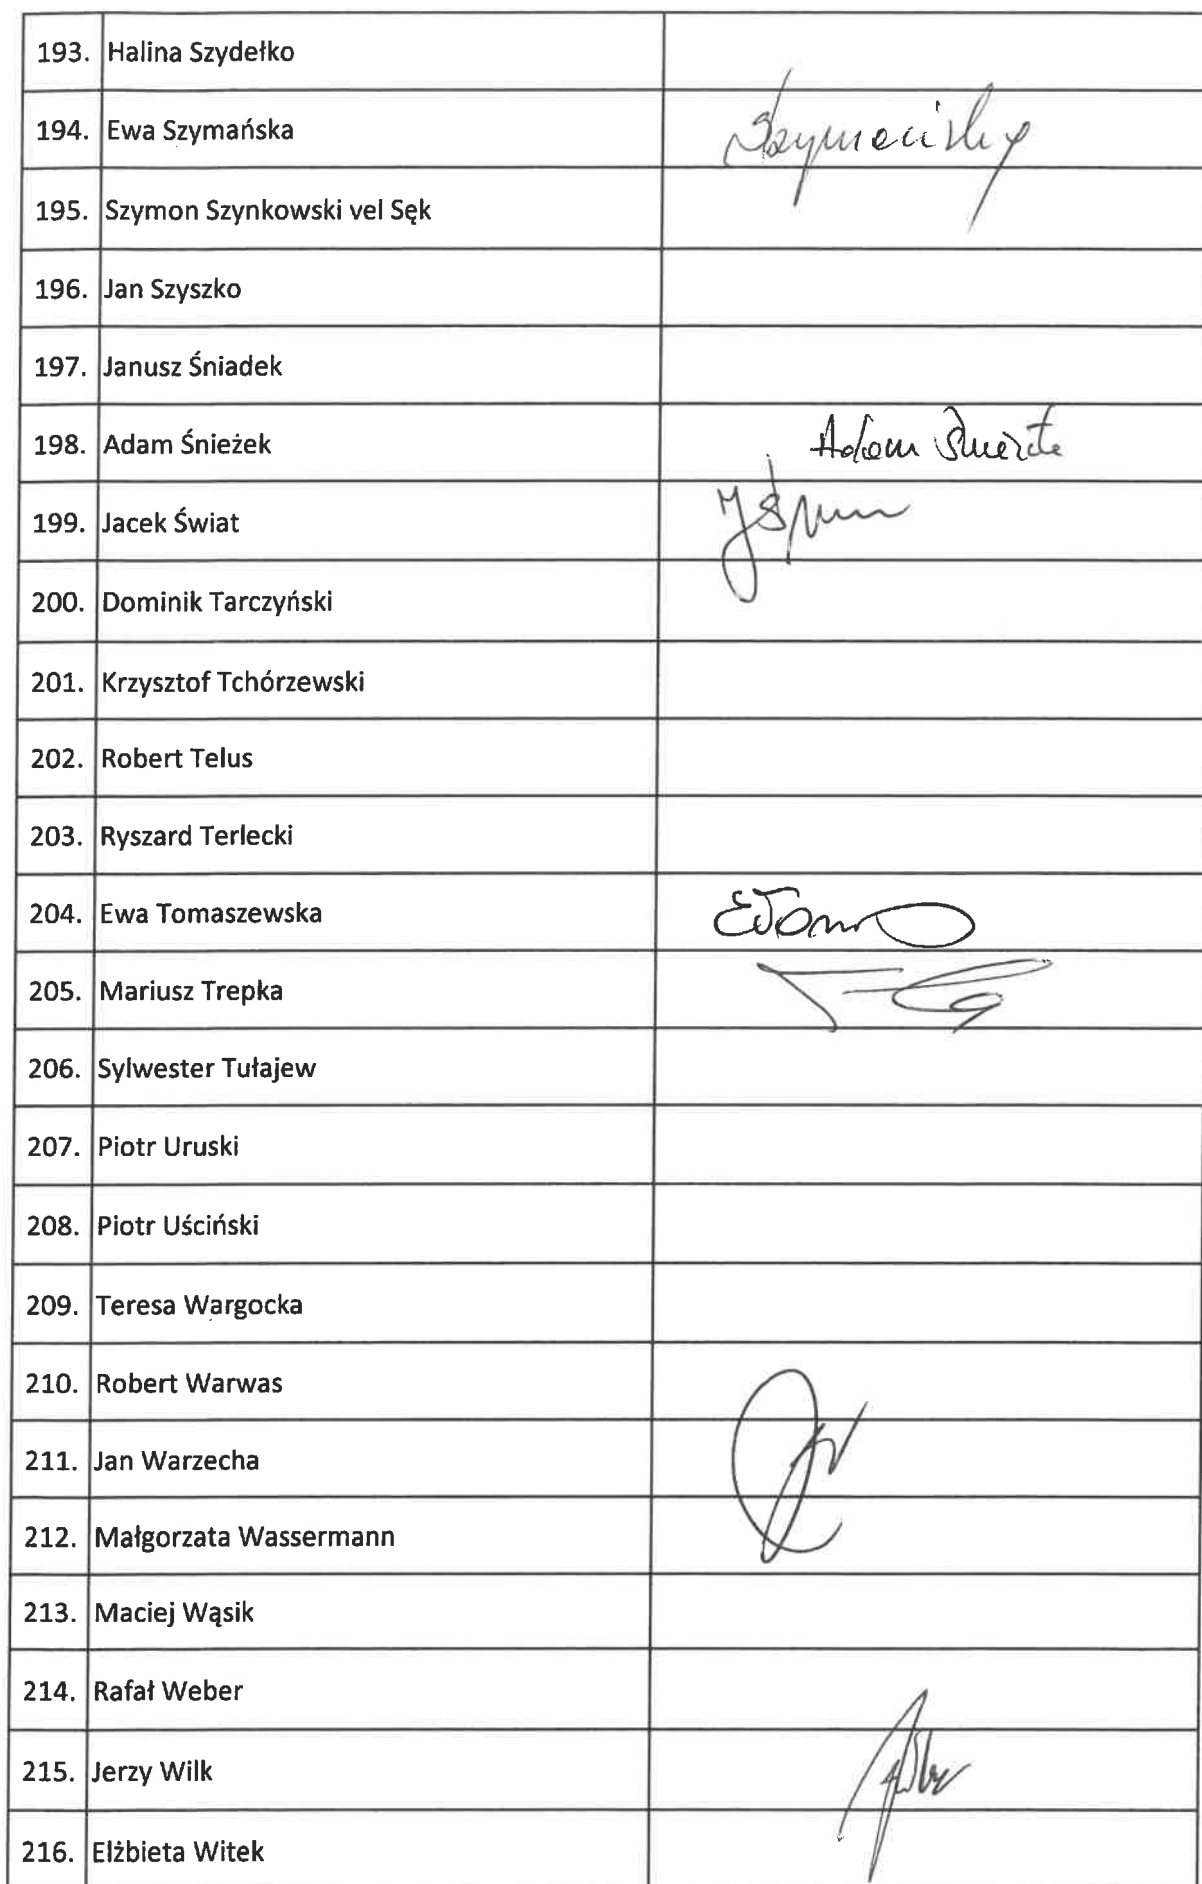 193. Halina Szydełko
194. Ewa Szymańska Szymańska
195. Szymon Szynkowski vel Sęk
196. Jan Szyszko
197. Janusz Śniadek
198. Adam Śnieżek Adam Śnieżek
199. Jacek Świat
200. Dominik Tarczyński
201. Krzysztof Tchórzewski
202. Robert Telus
203. Ryszard Terlecki
204. Ewa Tomaszewska
205. Mariusz Trepka
206. Sylwester Tułajew
207. Piotr Uruski
208. Piotr Uściński
209. Teresa Wargocka
210. Robert Warwas
211. Jan Warzecha
212. Małgorzata Wassermann
213. Maciej Wąsik
214. Rafał Weber
215. Jerzy Wilk
216. Elżbieta Witek